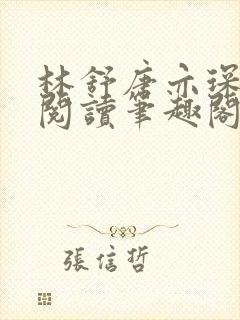 林舒唐亦琛
閱讀筆趣閣
張信哲